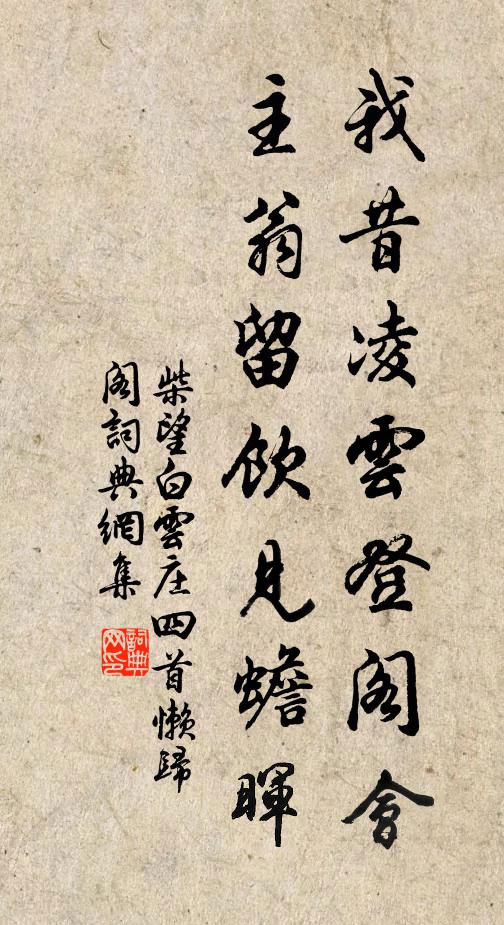 我昔凌雲登阁會
主翁留飲見蟾暉
柴望白雲庄四首懒歸
阁詞典網集
詞典
网印